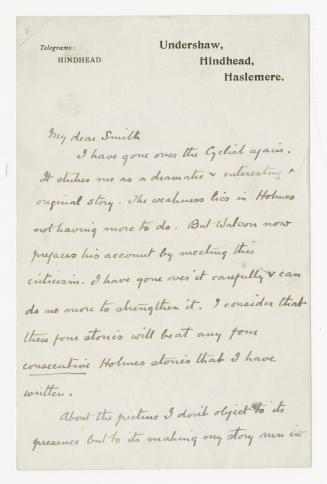 Telegrams:
HINDHEAD.
Undershaw,
Hindhead,
Haslemere.
My dear Smith
I have gone over the Cyclist again.
It strikes me as a dramatic & interesting &
original story. The weakness lies in Holmes
not having more to do. But Watson now
prefaces his account by meeting this
criticism. I have gone over it carefully & can
do no more to strengthen it. I consider that
these four stories will beat any four
consecutive Holmes stories that I have
written.
About the picture I don't object to its
presence but to its making my story run in